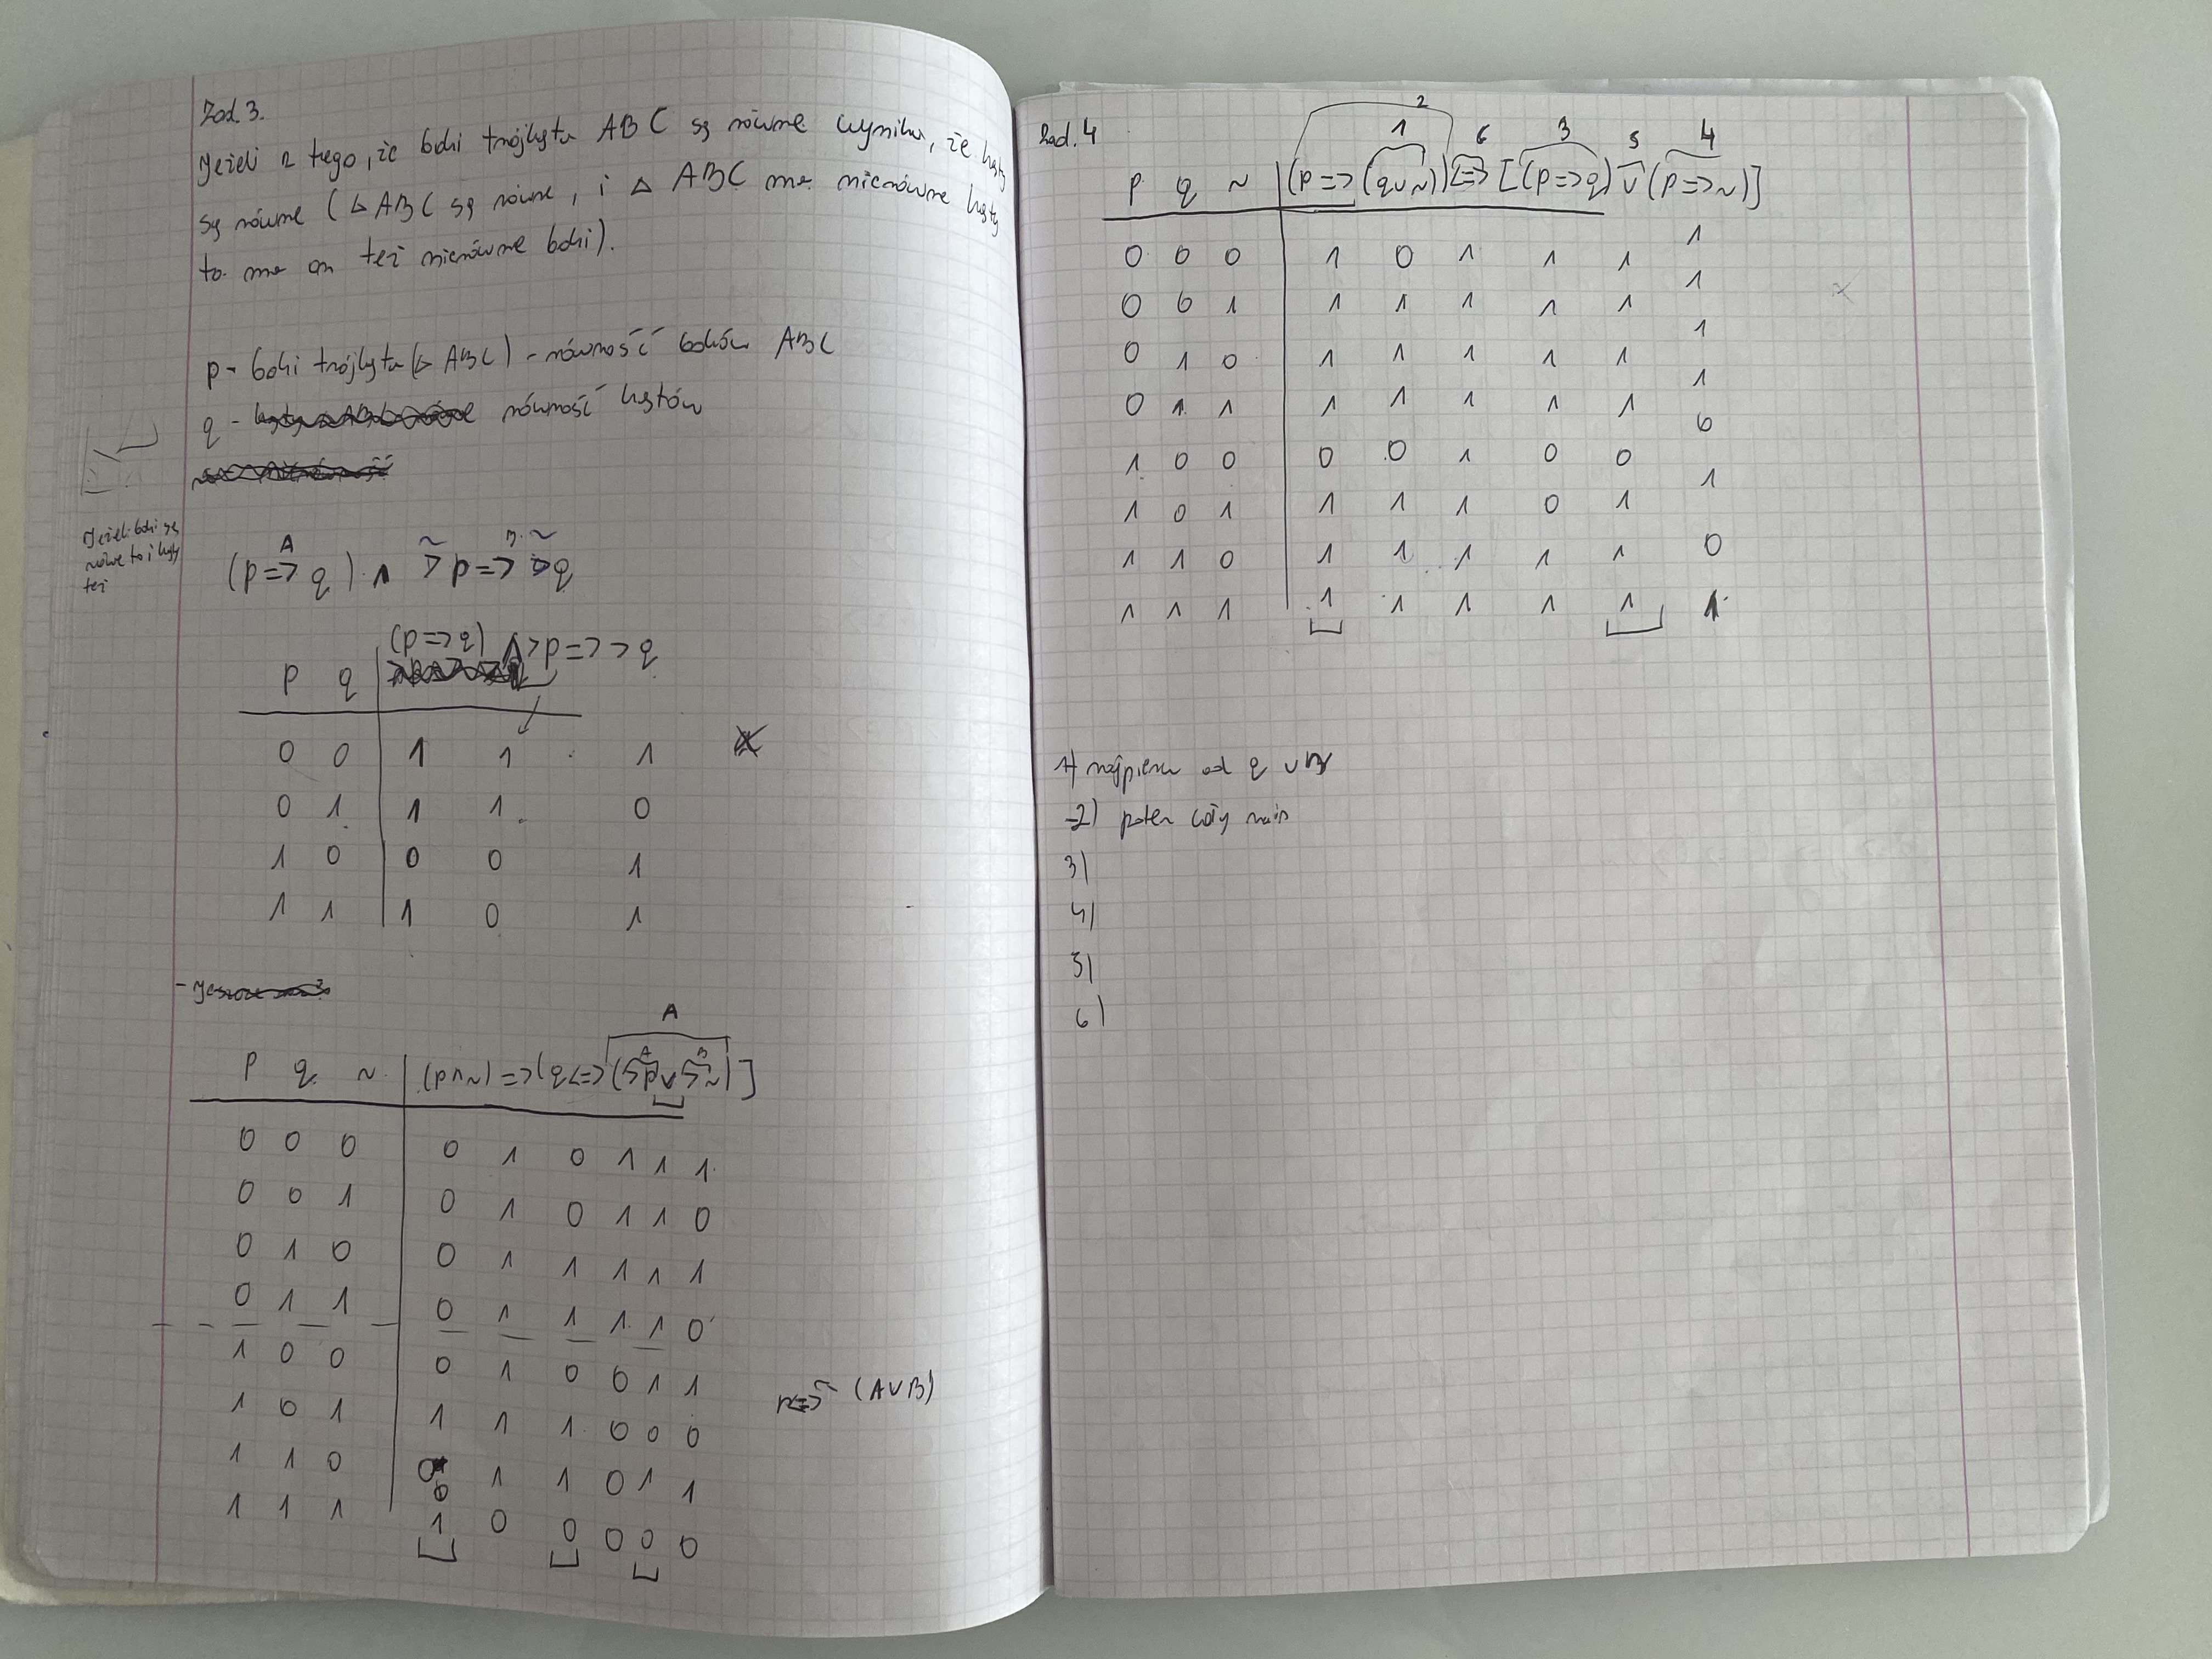 Zad. 3.
Jeżeli z tego, że boki trójkąta ABC są równe wynika, że kąty
są równe (△ABC są równe, i △ ABC ma nierówne kąty
to ma on też nierówne boki).
p - boki trójkąta (△ ABC) - równość boków ABC
q - równość kątów
Jeżeli boki są
równe to i kąty
też
A B
(p => q) ∧ ~p => ~q
(p => q) ∧ >p => >q
p q
0 0 1 1 1
0 1 1 1 0
1 0 0 0 1
1 1 1 0 1
A
A B
p q ~ (p∧~) => (q <=> (~p ∨ ~~)]
0 0 0 0 1 0 1 1 1
0 0 1 0 1 0 1 1 0
0 1 0 0 1 1 1 1 1
0 1 1 0 1 1 1 1 0
1 0 0 0 1 0 0 1 1
1 0 1 1 1 1 0 0 0
(A∨B)
1 1 0 0 1 1 0 1 1
1 1 1 1 0 0 0 0 0
Zad. 4
2
1 6 3 5 4
p q ~ (p => (q∨~)) <=> [(p => q) ∨ (p => ~)]
0 0 0 1 0 1 1 1 1
0 0 1 1 1 1 1 1 1
0 1 0 1 1 1 1 1 1
0 1 1 1 1 1 1 1 1
1 0 0 0 0 1 0 0 0
1 0 1 1 1 1 0 1 1
1 1 0 1 1 1 1 1 0
1 1 1 1 1 1 1 1 1
1) najpierw od q ∨
2) potem cały
3)
4)
5)
6)